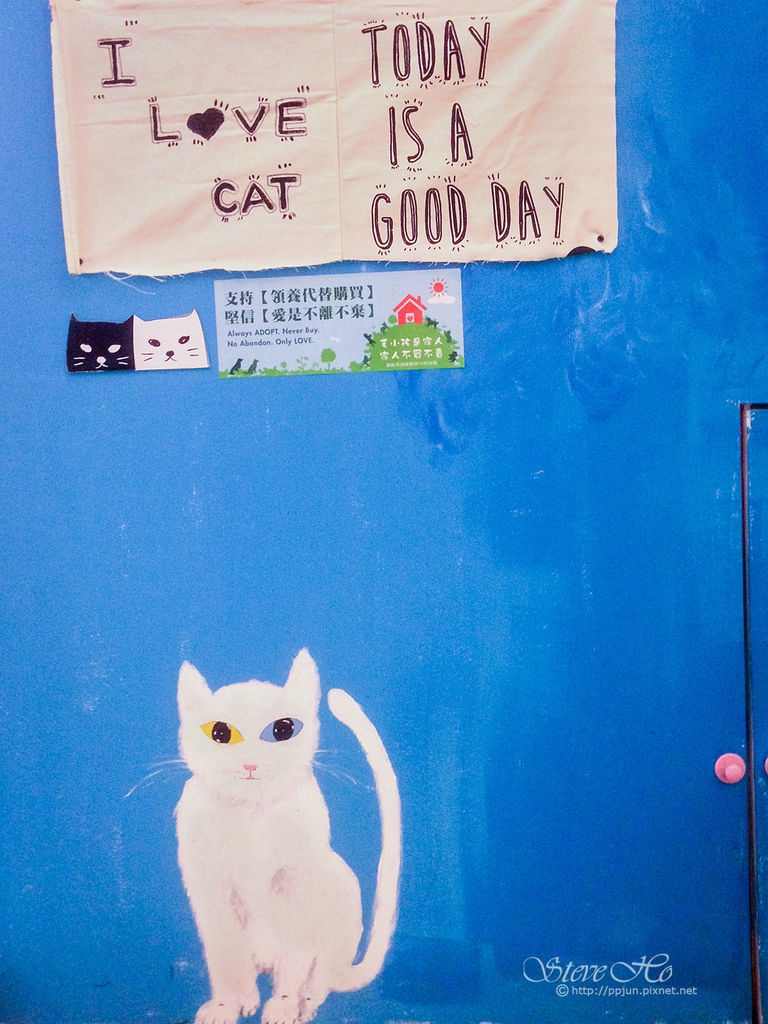 I
L♥VE
CAT
TODAY
IS A
GOOD DAY
支持【領養代替購買】
堅信【愛是不離不棄】
Always ADOPT. Never Buy.
No Abandon. Only LOVE.
毛小孩是家人
家人不買不賣
Steve Ho
© http://ppjun.pixnet.net